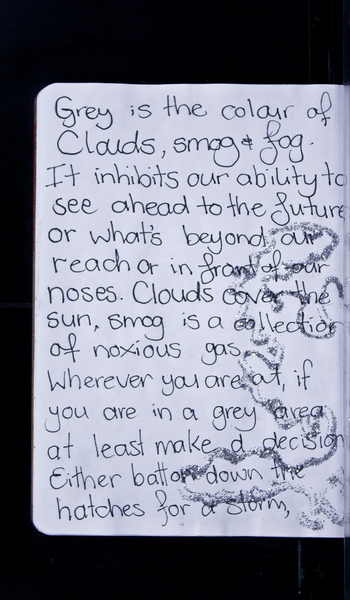 Grey is the colour of
Clouds, smog & fog.
It inhibits our ability to
see ahead to the future
or what's beyond our
reach or in front of our
noses. Clouds cover the
sun, smog is a collection
of noxious gas.
Wherever you are at, if
you are in a grey area
at least make a decision
Either batton down the
hatches for a storm,